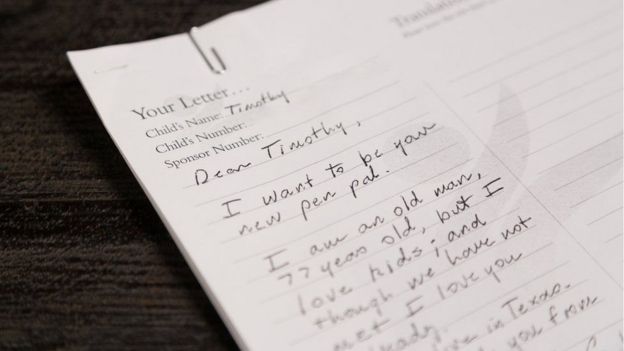 Your Letter...
Child's Name: Timothy
Child's Number:
Sponsor Number:
Dear Timothy,
I want to be your
new pen pal.
I am an old man,
77 years old, but I
love kids; and
though we have not
met I love you
already.
live in Texas.
you from
Translation